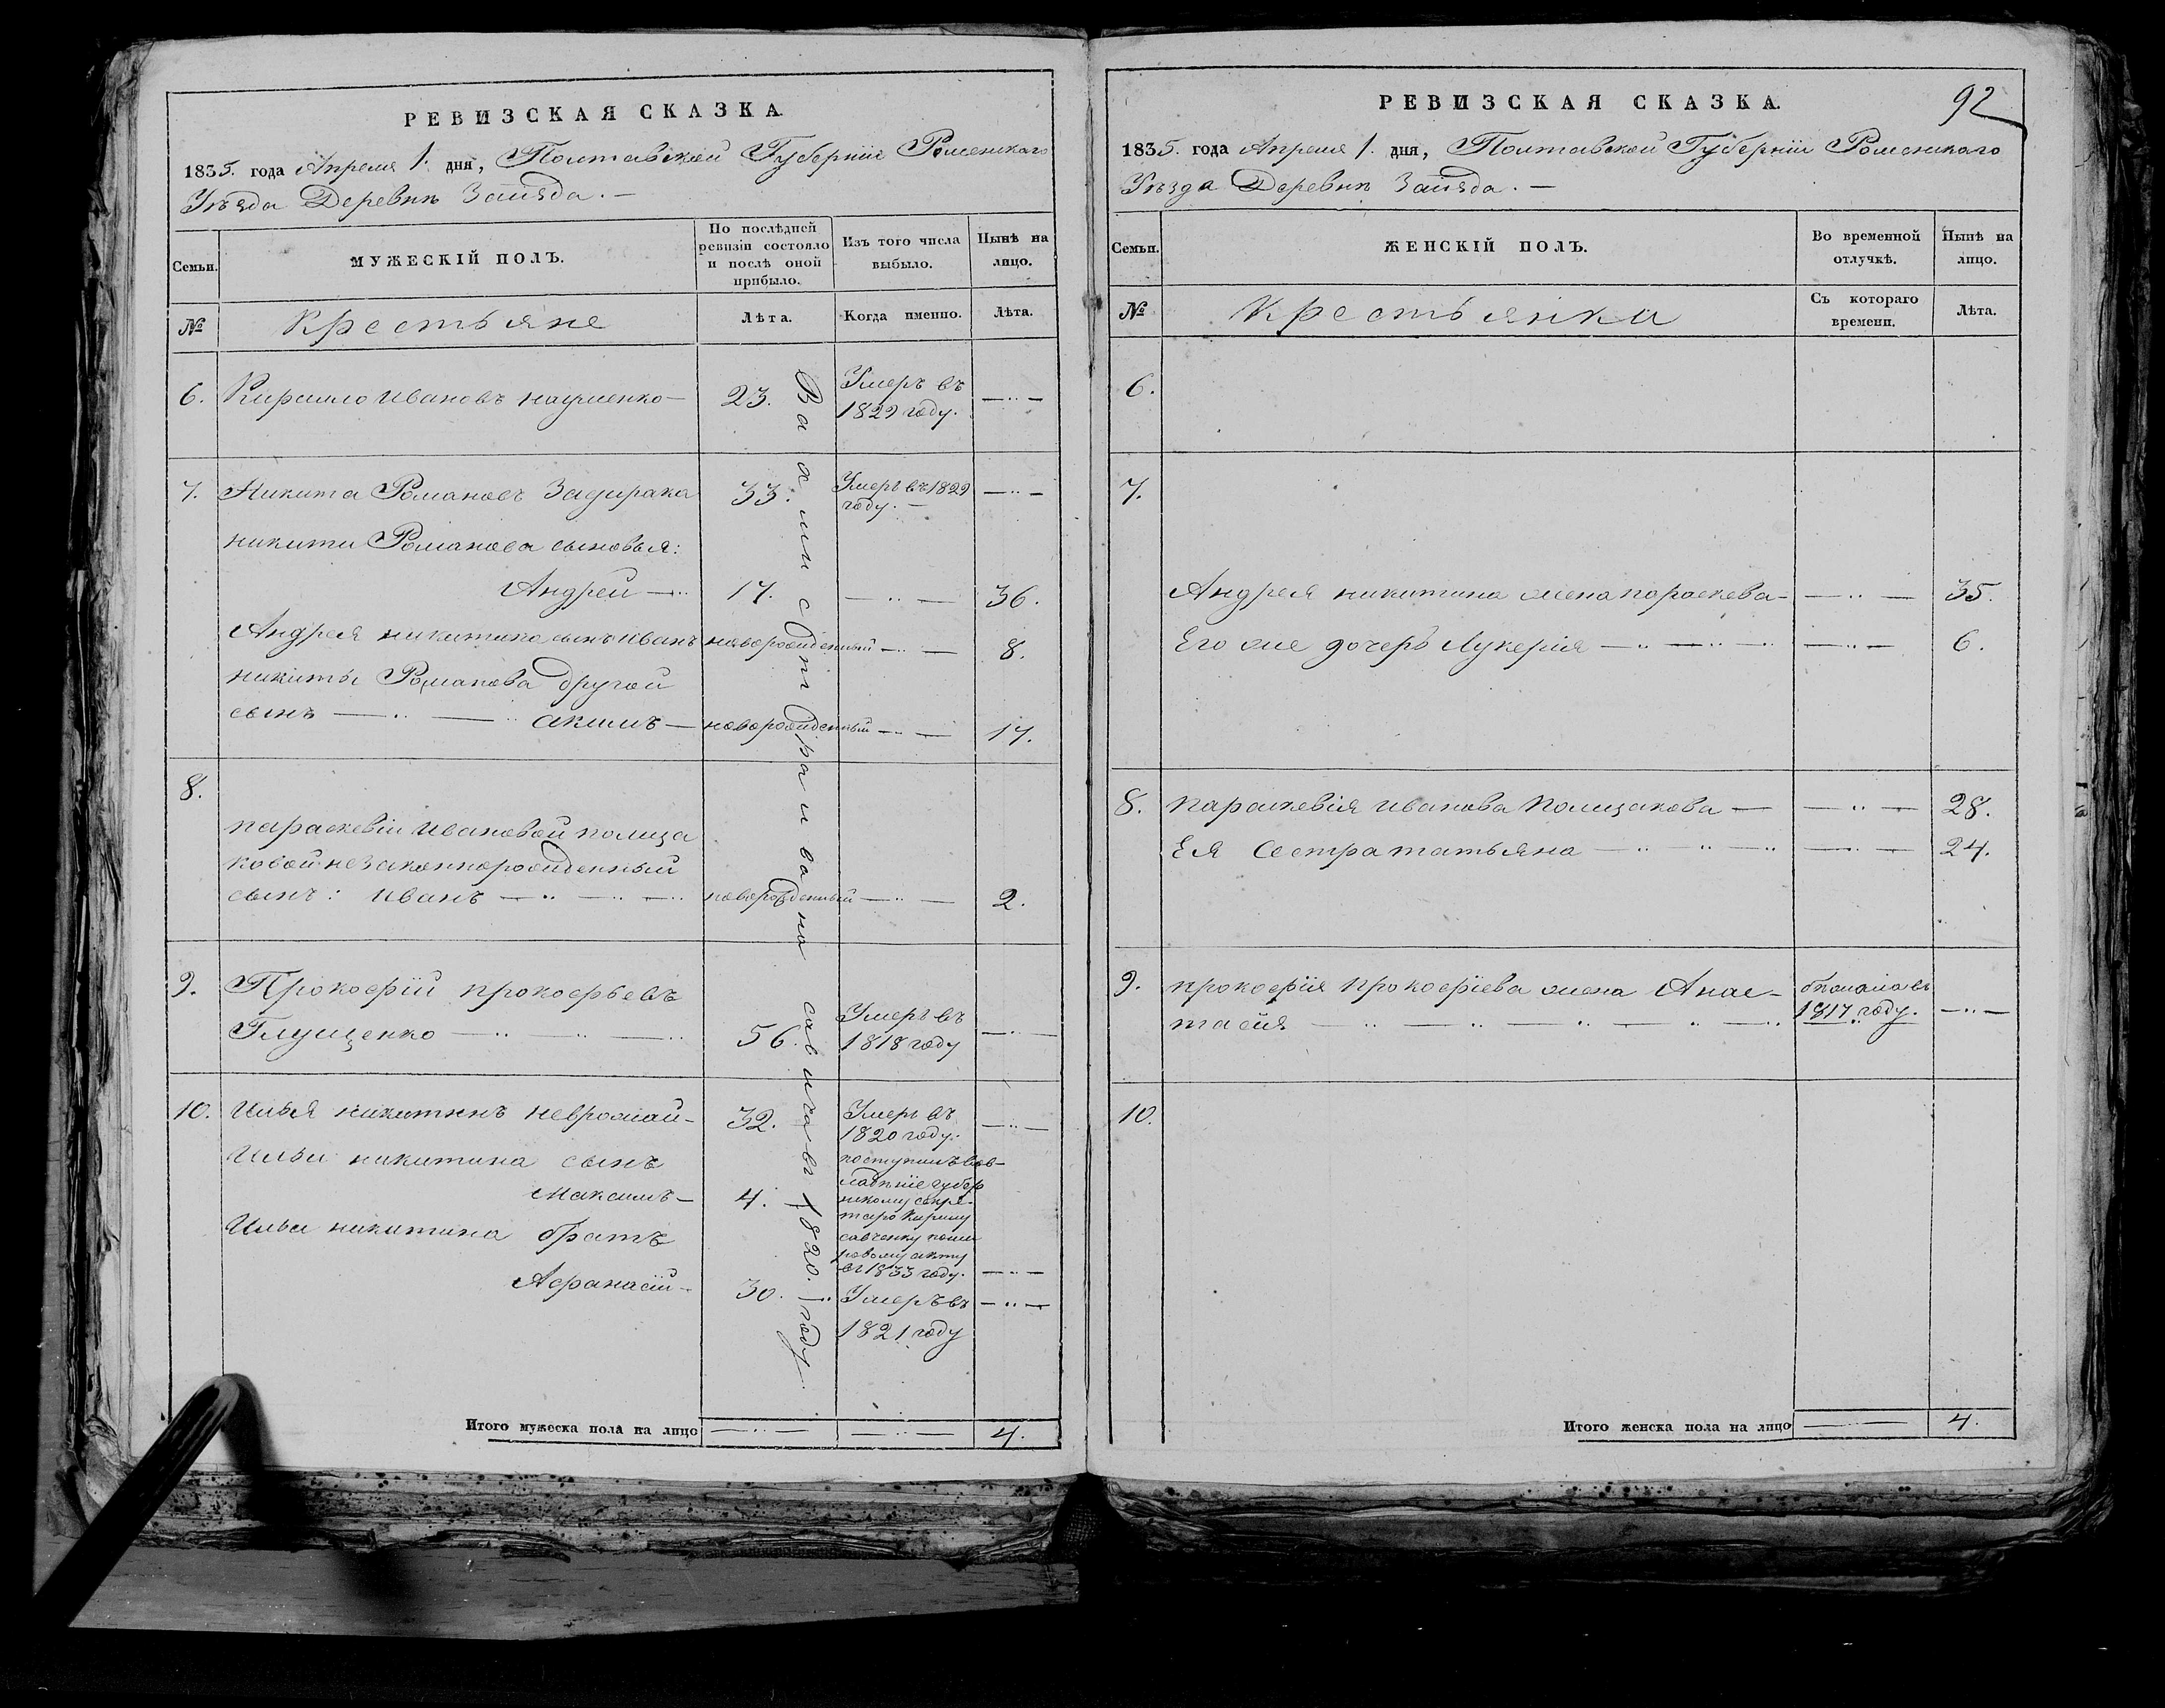 РЕВИЗСКАЯ СКАЗКА
1835. года Апреля 1. дня, Полтавской Губерніи Роменскаго
Уѣзда Деревнѣ
Семьи.
МУЖЕСКІЙ ПОЛЪ.
По послѣдней ревизіи состояло и послѣ оной прибыло.
Изъ того числа выбыло.
Нынѣ на лицо.
№
Крестьяне
Лѣта.
Когда именно.
Лѣта.
6. Кирилло Ивановъ Науменко — 23. Умеръ въ
1829 году. — „ —
7. Никита Романовъ Задирака 33. Умеръ въ 1829
году. — — „ —
Никиты Романова сыновья:
Андрей — 17. — „ — 36.
Андрея Никитина сынъ Иванъ новорожденный — „ — 8.
Никиты Романова другой
сынъ — „ — Акимъ — новорожденный — „ — 17.
8.
Параскевіи Ивановой Полища
ковой незаконнорожденный
сынъ: Иванъ — „ — новорожденный — „ — 2.
9. Прокофій Прокофьевъ
Глущенко — „ — 56. Умеръ въ
1818 году — „ —
10. Илья Никитинъ 32. Умеръ въ
1820 году. — „ —
Ильи Никитина сынъ
Максимъ — 4. поступилъ во в-
ладѣніе губер
нскому секре-
тарю Кирилу
Савченку
акту
въ 1833 году. — „ —
Ильи Никитина братъ
Афанасій — 30. Умеръ въ — „ —
1821 году
1820. году.
Итого мужеска пола на лицо — „ — — „ — 4.
92
РЕВИЗСКАЯ СКАЗКА.
1835. года Апреля 1. дня, Полтавской Губерніи Роменскаго
Уѣзда Деревнѣ
Семьи.
ЖЕНСКІЙ ПОЛЪ.
Во временной отлучкѣ.
Нынѣ на лицо.
№
Крестьянки
Съ котораго времени.
Лѣта.
6.
7.
Андрея Никитина жена Параскева — — „ — 35.
Его же дочерь Лукерія — „ — „ — „ — „ — 6.
8. Параскевія Иванова Полищакова — — „ — 28.
Ея сестра Татьяна — „ — „ — „ — „ — 24.
9. Прокофія Прокофіева жена Анас-
тасія — „ — „ — „ — „ — „ 1817 году. — „ —
10.
Итого женска пола на лицо — 4.